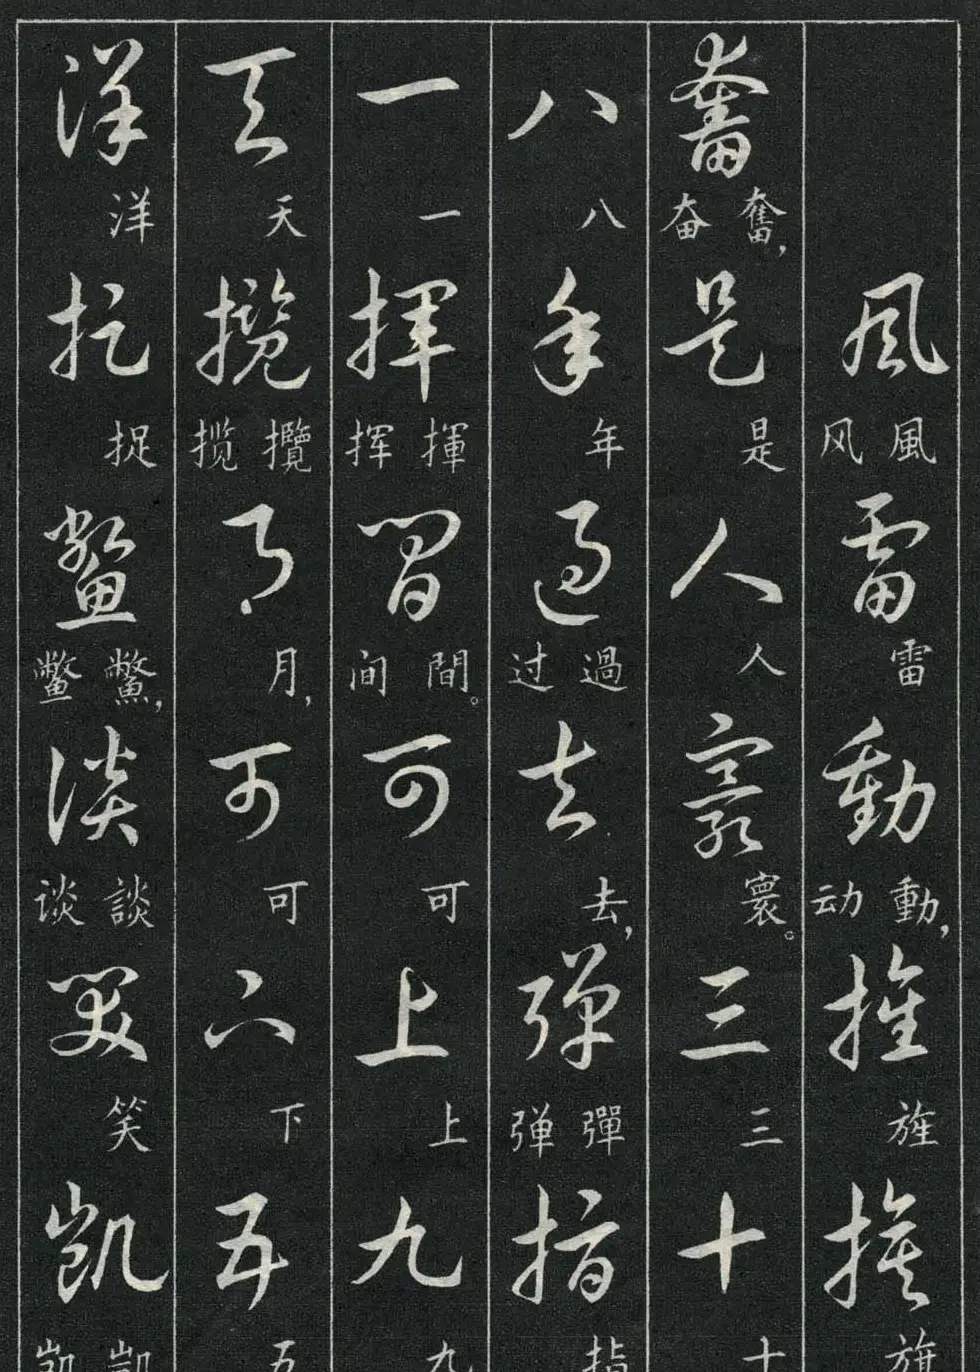 風 風 风 雷 雷 動 動， 动 旌 旌 旗 旗
奮 奮， 奋 是 是 人 人 寰 寰。 三 三 十 十
八 八 年 年 過 過 过 去 去， 彈 彈 弹 指 指
一 一 揮 揮 挥 間 間。 间 可 可 上 上 九 九
天 天 攬 攬 揽 月 月， 可 可 下 下 五 五
洋 洋 捉 捉 鱉 鱉， 鳖 談 談 谈 笑 笑 凱 凱 凯